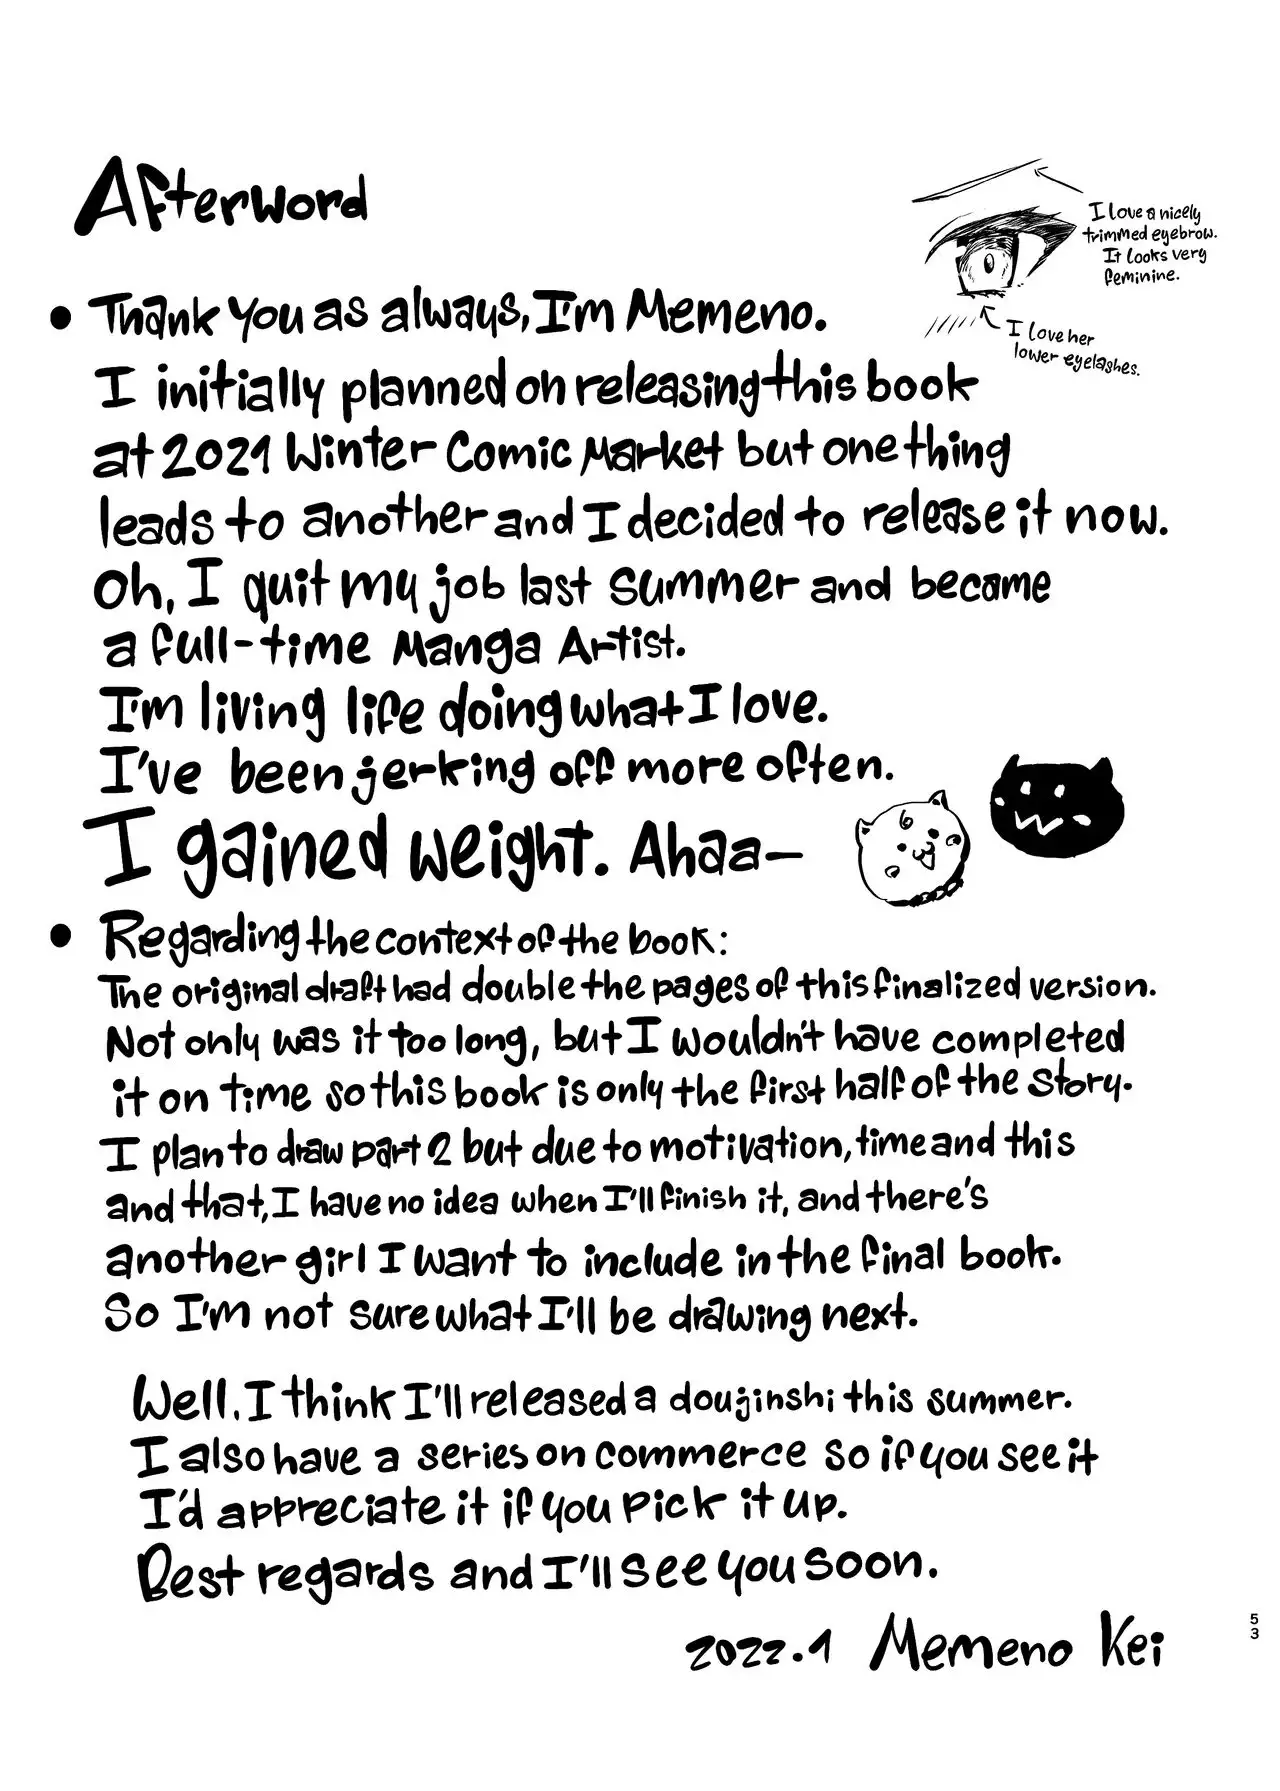 Afterword
I love a nicely
trimmed eyebrow.
It looks very
feminine.
I love her
lower eyelashes.
• Thank you as always, I'm Memeno.
I initially planned on releasing this book
at 2021 Winter Comic Market but one thing
leads to another and I decided to release it now.
Oh, I quit my job last summer and become
a full-time Manga Artist.
I'm living life doing what I love.
I've been jerking off more often.
I gained weight. Ahaa—
• Regarding the context of the book:
The original draft had double the pages of this finalized version.
Not only was it too long, but I wouldn't have completed
it on time so this book is only the first half of the story.
I plan to draw part 2 but due to motivation, time and this
and that, I have no idea when I'll finish it, and there's
another girl I want to include in the final book.
So I'm not sure what I'll be drawing next.
Well, I think I'll released a doujinshi this summer.
I also have a series on commerce so if you see it
I'd appreciate it if you pick it up.
Best regards and I'll see you soon.
2022.1 Memeno Kei
53